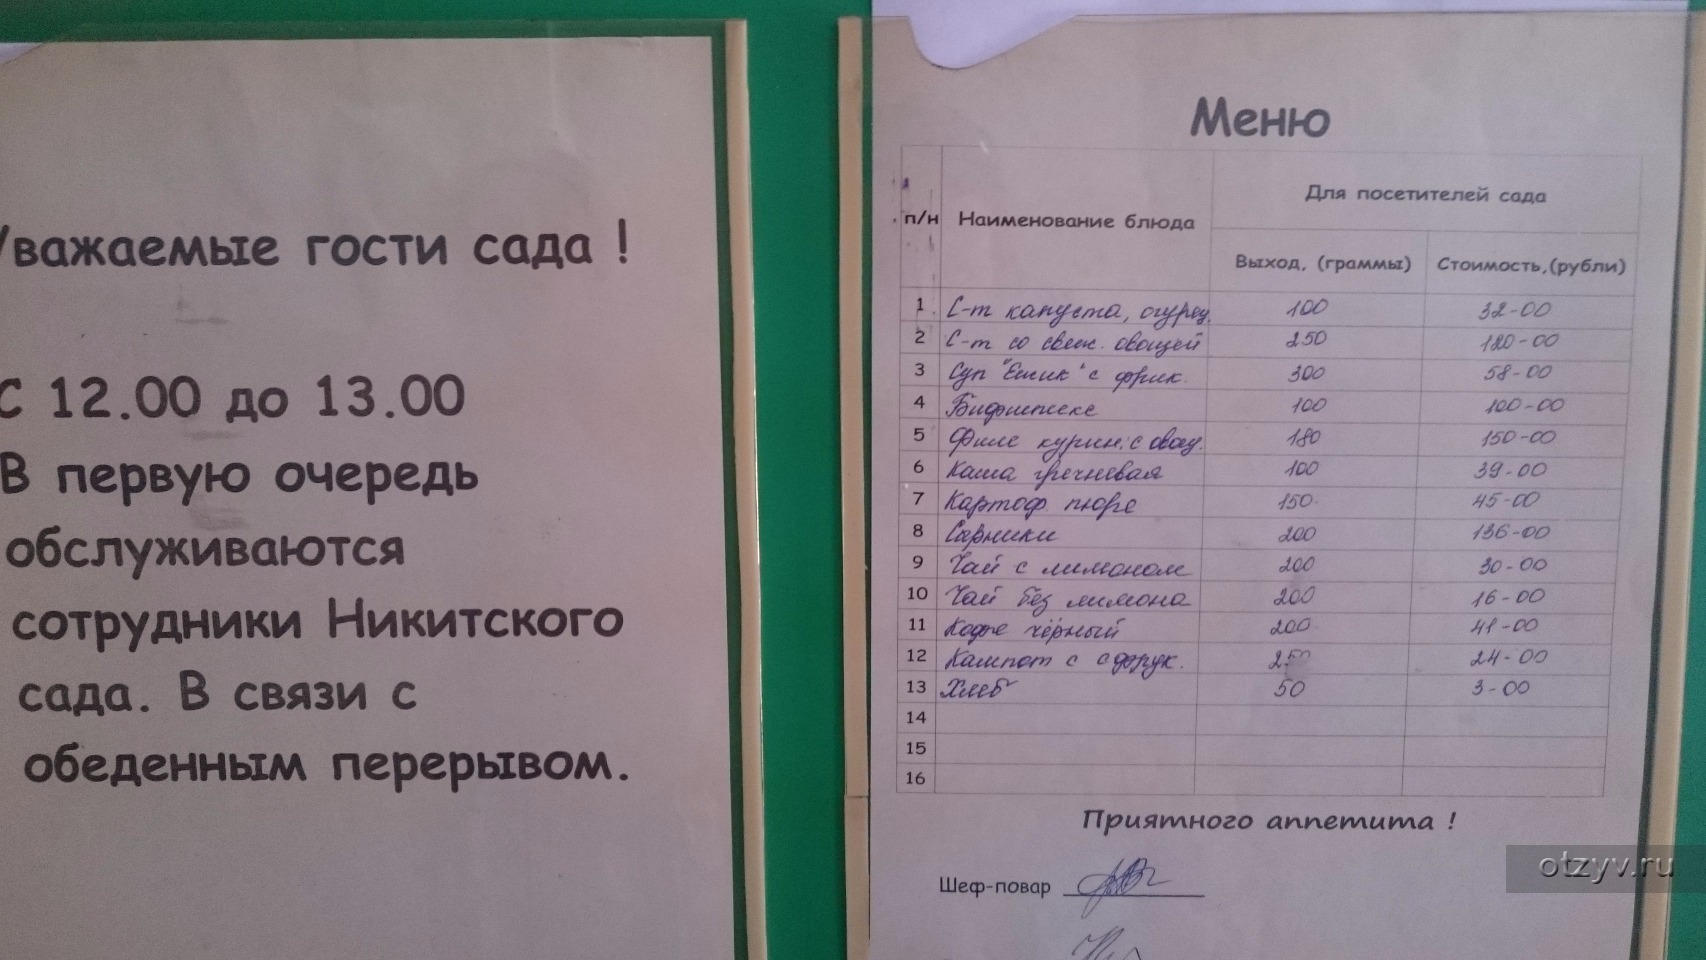 Уважаемые гости сада !
С 12.00 до 13.00
В первую очередь
обслуживаются
сотрудники Никитского
сада. В связи с
обеденным перерывом.
Меню
п/н Наименование блюда Для посетителей сада
Выход, (граммы) Стоимость,(рубли)
1 С-т капуста, огурец. 100 32-00
2 С-т со свеж. овощей 250 120-00
3 Суп "Ёжик" с фрик. 300 58-00
4 Бифштекс 100 100-00
5 Филе курин. с овощ. 180 150-00
6 Каша гречневая 100 39-00
7 Картоф. пюре 150 45-00
8 Сырники 200 136-00
9 Чай с лимоном 200 30-00
10 Чай без лимона 200 16-00
11 Кофе чёрный 200 41-00
12 Кампот с 250 24-00
13 Хлеб 50 3-00
14
15
16
Приятного аппетита !
Шеф-повар
otzyv.ru